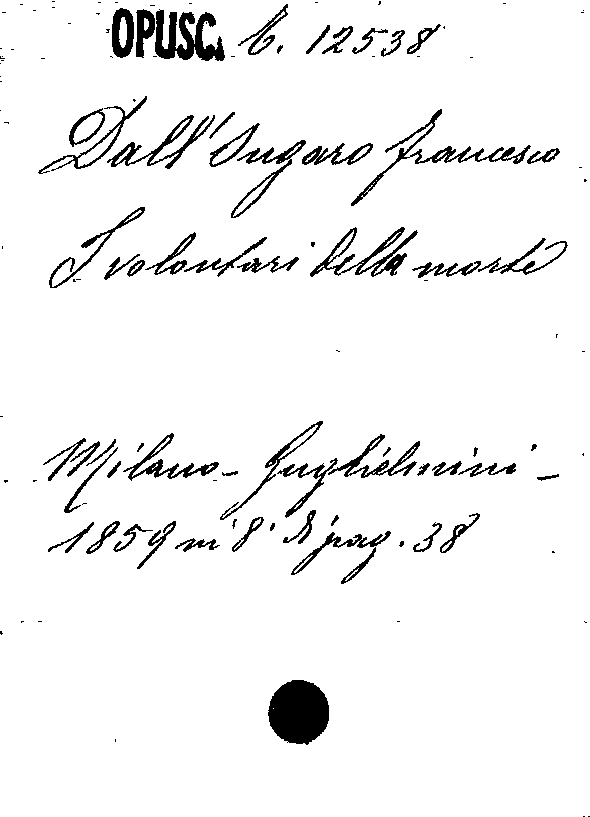 OPUSC. C. 12538
Dall'Ongaro Francesco
I volontari della morte
Milano - Guglielmini -
1859 in 8° di pag. 38